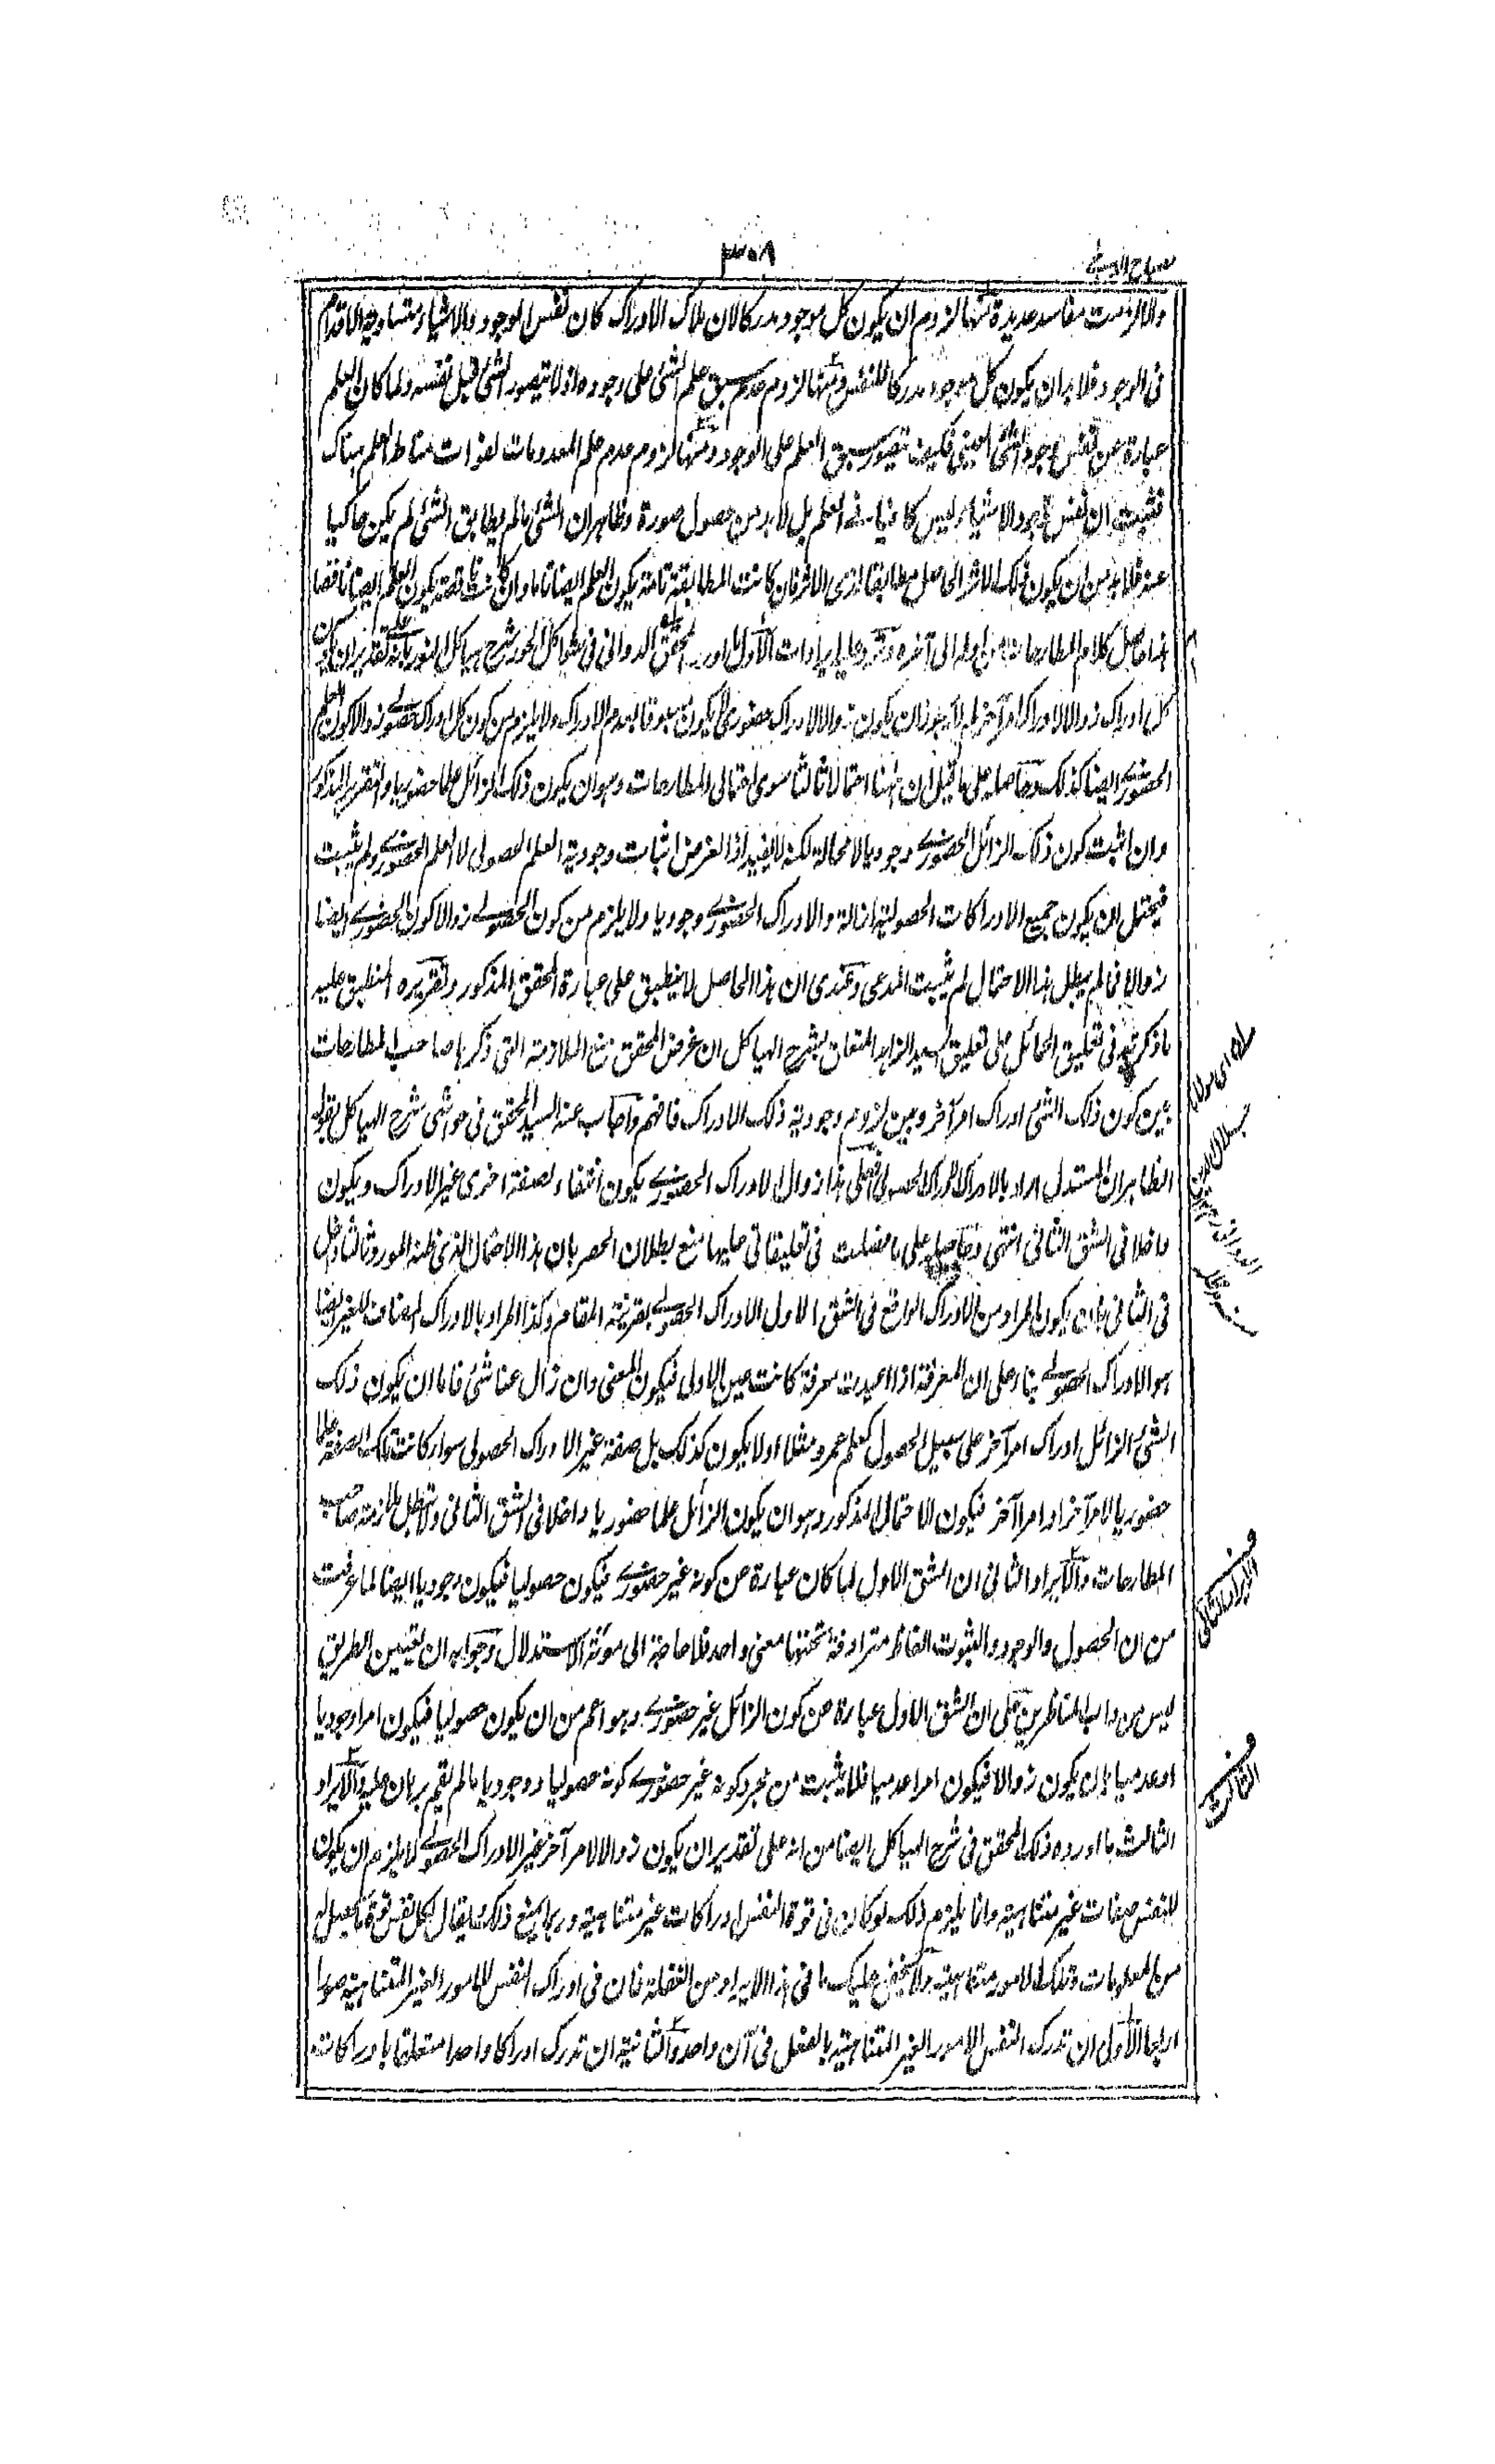 مصباح الدجى
٣٠٨
والا لزمت مفاسد عديدة منها لزوم ان يكون كل موجود مدركا لان ملاك الادراك كان نفس الوجود والاشياء متساوية الاقدام
فى الوجود فلا بد ان يكون كل موجود مدركا للنفس ومنها لزوم عدم سبق علم الشئ على وجوده اذ لا يتصور الشئ قبل نفسه ولما كان العلم
عبارة عن نفس وجود الشئ العينى فكيف يتصور سبق العلم على الوجود ومنها لزوم عدم علم المعدومات لفوات مناط العلم هناك
فثبت ان نفس وجود الاشياء ليس كافيا فى العلم بل لا بد من حصول صورة وظاهر ان الشئ ما لم يطابق الشئ لم يكن حاكيا
عنه فلا بد من ان يكون ذلك الاثر الحاصل مطابقا لذى الاثر فان كانت المطابقة تامة يكون العلم ايضا تاما وان كانت ناقصة يكون العلم ايضا ناقصا
هذا حاصل كلام المطارحات من اوله الى آخره وترد عليه ايرادات الاول ما اورده المحقق الدوانى فى شواكل الحور شرح هياكل النور بانه على تقدير ان يكون
كل ادراك زوالا لادراك امر آخر لم لا يجوز ان يكون زوالا لادراك حضورى لا يكون مسبوقا بعدم الادراك ولا يلزم من كون كل ادراك حصولى زوالا كون العلم
الحضورى ايضا كذلك وحاصله على ما قيل ان ههنا احتمالا ثالثا سوى احتمالى المطارحات وهو ان يكون ذلك الزائل علما حضوريا والتقرير المذكور
وان اثبت كون ذلك الزائل الحضورى وجوديا لا محالة لكنه لا يفيد اذ الغرض اثبات وجودية العلم الحصولى لا العلم الحضورى ولم يثبت
فيحتمل ان يكون جميع الادراكات الحصولية ازالة والادراك الحضورى وجوديا ولا يلزم من كون الحصولى زوالا كون الحضورى ايضا
زوالا فما لم يبطل هذا الاحتمال لم يثبت المدعى وعندى ان هذا الحاصل لا ينطبق على عبارة المحقق المذكور وتقريره المنطبق عليه
ما ذكرته فى تعليق الحمائل على تعليق السيد الزاهد المتعلق بشرح الهياكل ان غرض المحقق منع الملازمة التى ذكرها صاحب المطارحات
بين كون ذلك الشئ ادراك امر آخر وبين لزوم وجودية ذلك الادراك فافهم واجاب عنه السيد المحقق فى حواشى شرح الهياكل بقوله
الظاهر ان المستدل اراد بالادراك الادراك الحصولى فعلى هذا زوال الادراك الحضورى يكون انتفاء لصفة اخرى غير الادراك ويكون
داخلا فى الشق الثانى انتهى وحاصله على ما فصلت فى تعليقاتى عليها منع بطلان الحصر بان هذا الاحتمال الذى ظنه المورد ثالثا داخل
فى الثانى بان يكون المراد من الادراك الواقع فى الشق الاول الادراك الحصولى بقرينة المقام وكذا المراد بالادراك المضاف للغير ايضا
هو الادراك الحصولى بناء على ان المعرفة اذا اعيدت معرفة كانت عين الاولى فيكون المعنى وان زال عنا شئ فاما ان يكون ذلك
الشئ الزائل ادراك امر آخر على سبيل الحصول كعلم عمرو مثلا او لا يكون كذلك بل صفة غير الادراك الحصولى سواء كانت تلك الصفة علما
حضوريا لامر آخر او امرا آخر فيكون الاحتمال المذكور وهو ان يكون الزائل علما حضوريا داخلا فى الشق الثانى ولا تبطل ملازمة صاحب
المطارحات والايراد الثانى ان الشق الاول لما كان عبارة عن كونه غير حضورى فيكون حصوليا فيكون وجوديا ايضا لما عرفت
من ان الحصول والوجود والثبوت الفاظ مترادفة تحتها معنى واحد فلا حاجة الى مؤنة الاستدلال وجوابه ان تعيين الطريق
ليس من داب المناظرين على ان الشق الاول عبارة عن كون الزائل غير حضورى وهو اعم من ان يكون حصوليا فيكون امرا وجوديا
او عدميا بان يكون زوالا فيكون امرا عدميا فلا يثبت من مجرد كونه غير حضورى كونه حصوليا ووجوديا ما لم يقم برهان عليه والايراد
الثالث ما اورده ذلك المحقق فى شرح الهياكل ايضا من انه على تقدير ان يكون زوالا لامر آخر غير الادراك الحصولى لا يلزم ان يكون
للنفس صفات غير متناهية وانما يلزم ذلك لو كان فى قوة النفس ادراكات غير متناهية وربما يمنع ذلك ما يقال لكل نفس قوة تحصيل
من المعلومات وتلك الامور متناهية ولا يخفى عليك ما فى هذا الايراد من الغفلة فان فى ادراك النفس للامور الغير المتناهية صورا
اربعا الاولى ان تدرك النفس الامور الغير المتناهية بالفعل فى آن واحد والثانية ان تدرك ادراكا واحدا متعلقا بادراكات
اى مولانا
جلال الدين
الدوانى
منه
الايراد الثانى
منه
الثالث